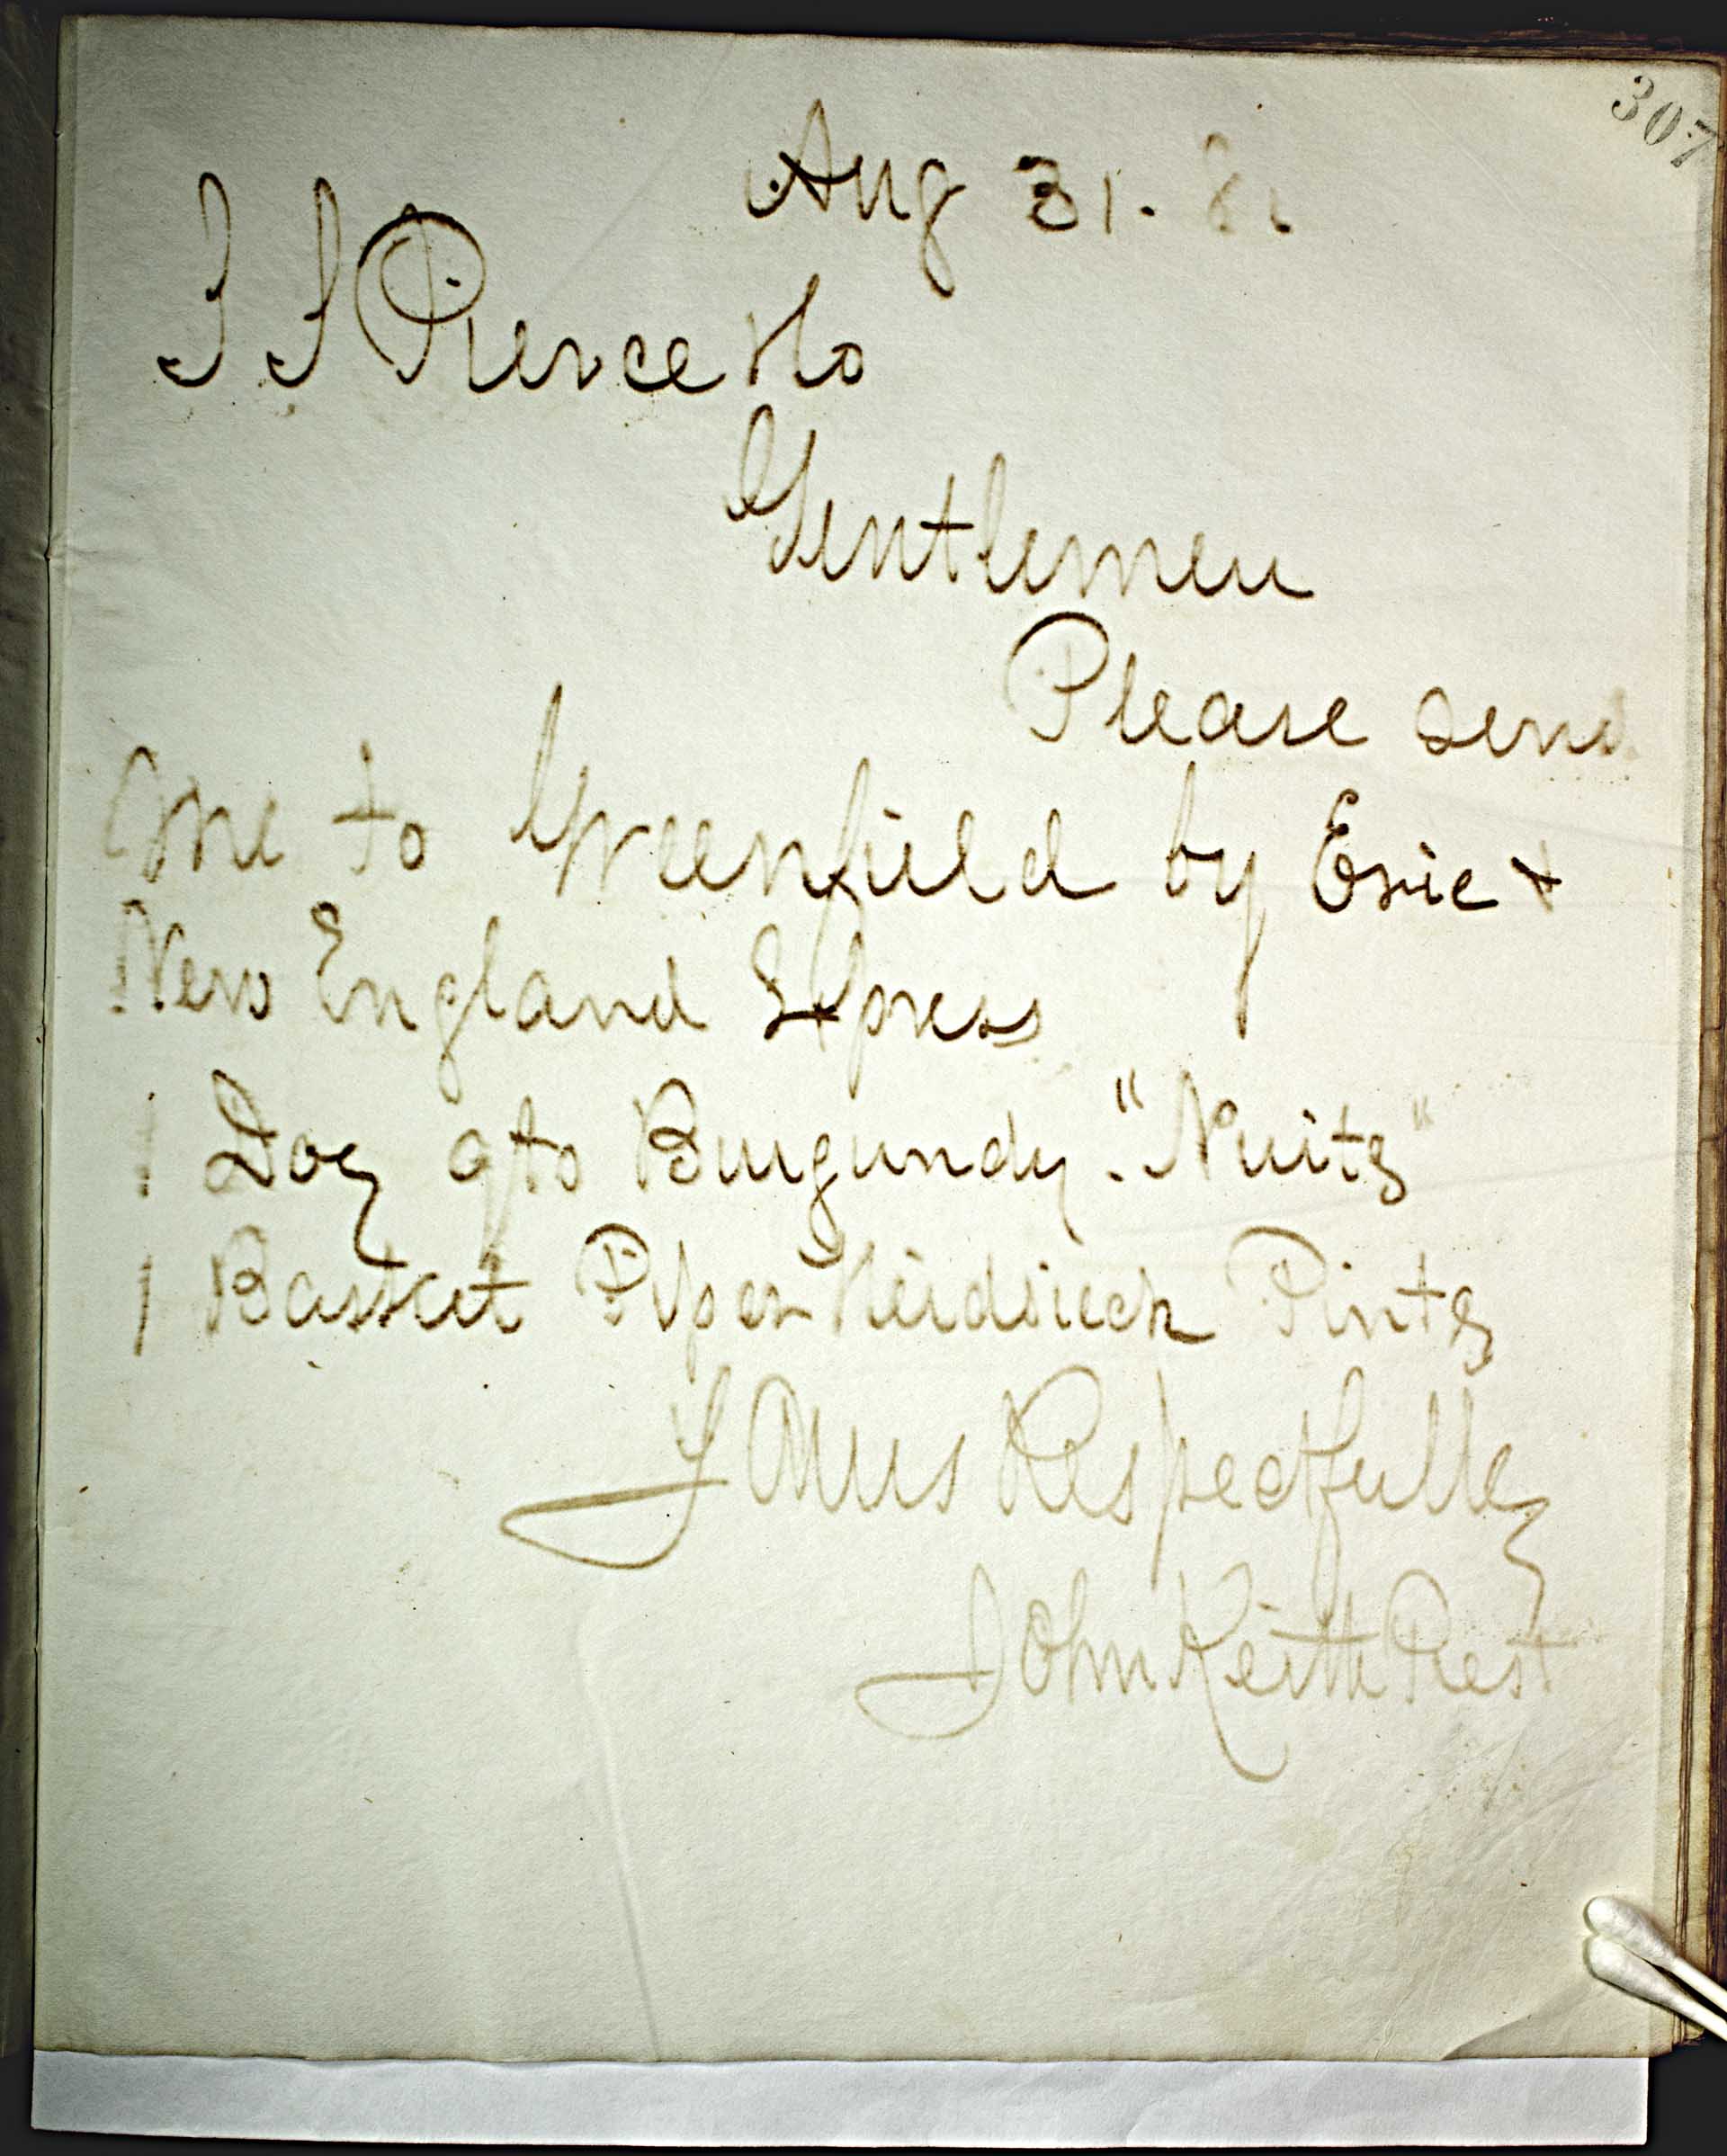 307
Aug 31. 81.
S S Pierce & Co
Gentlemen
Please send
me to Greenfield by Erie +
New England Express
1 Doz qts Burgundy. "Nuits"
1 Basket Piper Heidsieck Pints
Yours Respectfully
John Keith Prest